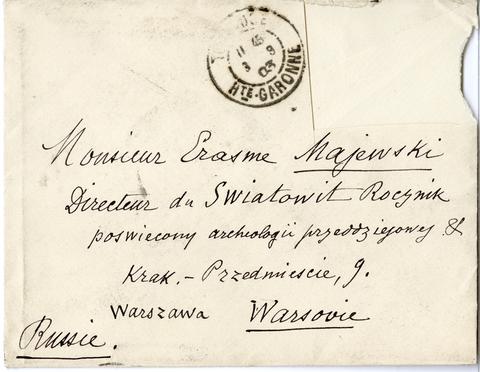 HTE-GARONNE
Monsieur Erasme Majewski
Directeur du Swiatowit Rocznik
poswiecony archeologii przeddziejowej &
Krak.- Przedmiescie, 9.
Warszawa Warsovie
Russie.